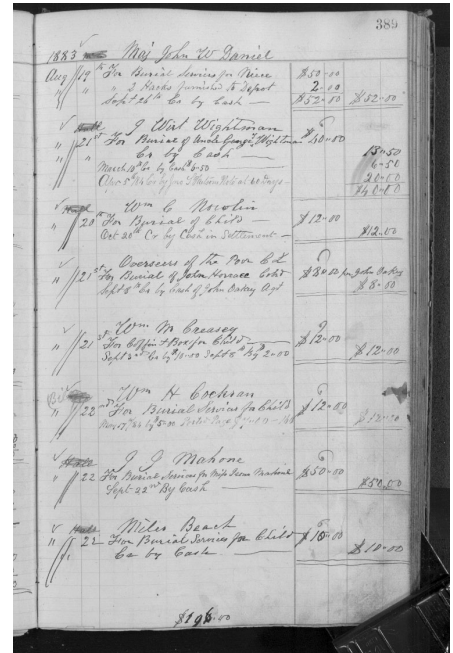 389
1883 Maj John W Daniel
Aug 19th For Burial Services for Niece $50.00
" " " 2 Hacks furnished to Depot 2.00
Sept 26th Cr by Cash — $52.00 $52.00
J Wirt Wightman
" 21st For Burial of Uncle $40.00
" " Cr by Cash — 13.50
March 10th Cr by Cash 6.50 6.50
at 60 days — 20.00
$40.00
Wm C Nowlin
" 20th For Burial of Child — $12.00
Oct 20th Cr by Cash in Settlement — $12.00
Overseers of the Poor C.L
" 21st For Burial of John Horace Cold $8.00 per John Oakey
Sept 8th Cr by Cash of John Oakey Agt $8.00
Wm M Creasey
" 21st For Coffin & Box for Child — $12.00
Sept 3rd Cr by 10.00 Sept 8th By 2.00 $12.00
Wm H Cochran
" 22nd For Burial Services for Child $12.00
$12.00
J J Mahone
" 22 For Burial Services for Miss Mahone $50.00
Sept 22nd By Cash $50.00
Miles Beach
" 22 For Burial Services for Child $10.00
Cr by Cash $10.00
$196.00